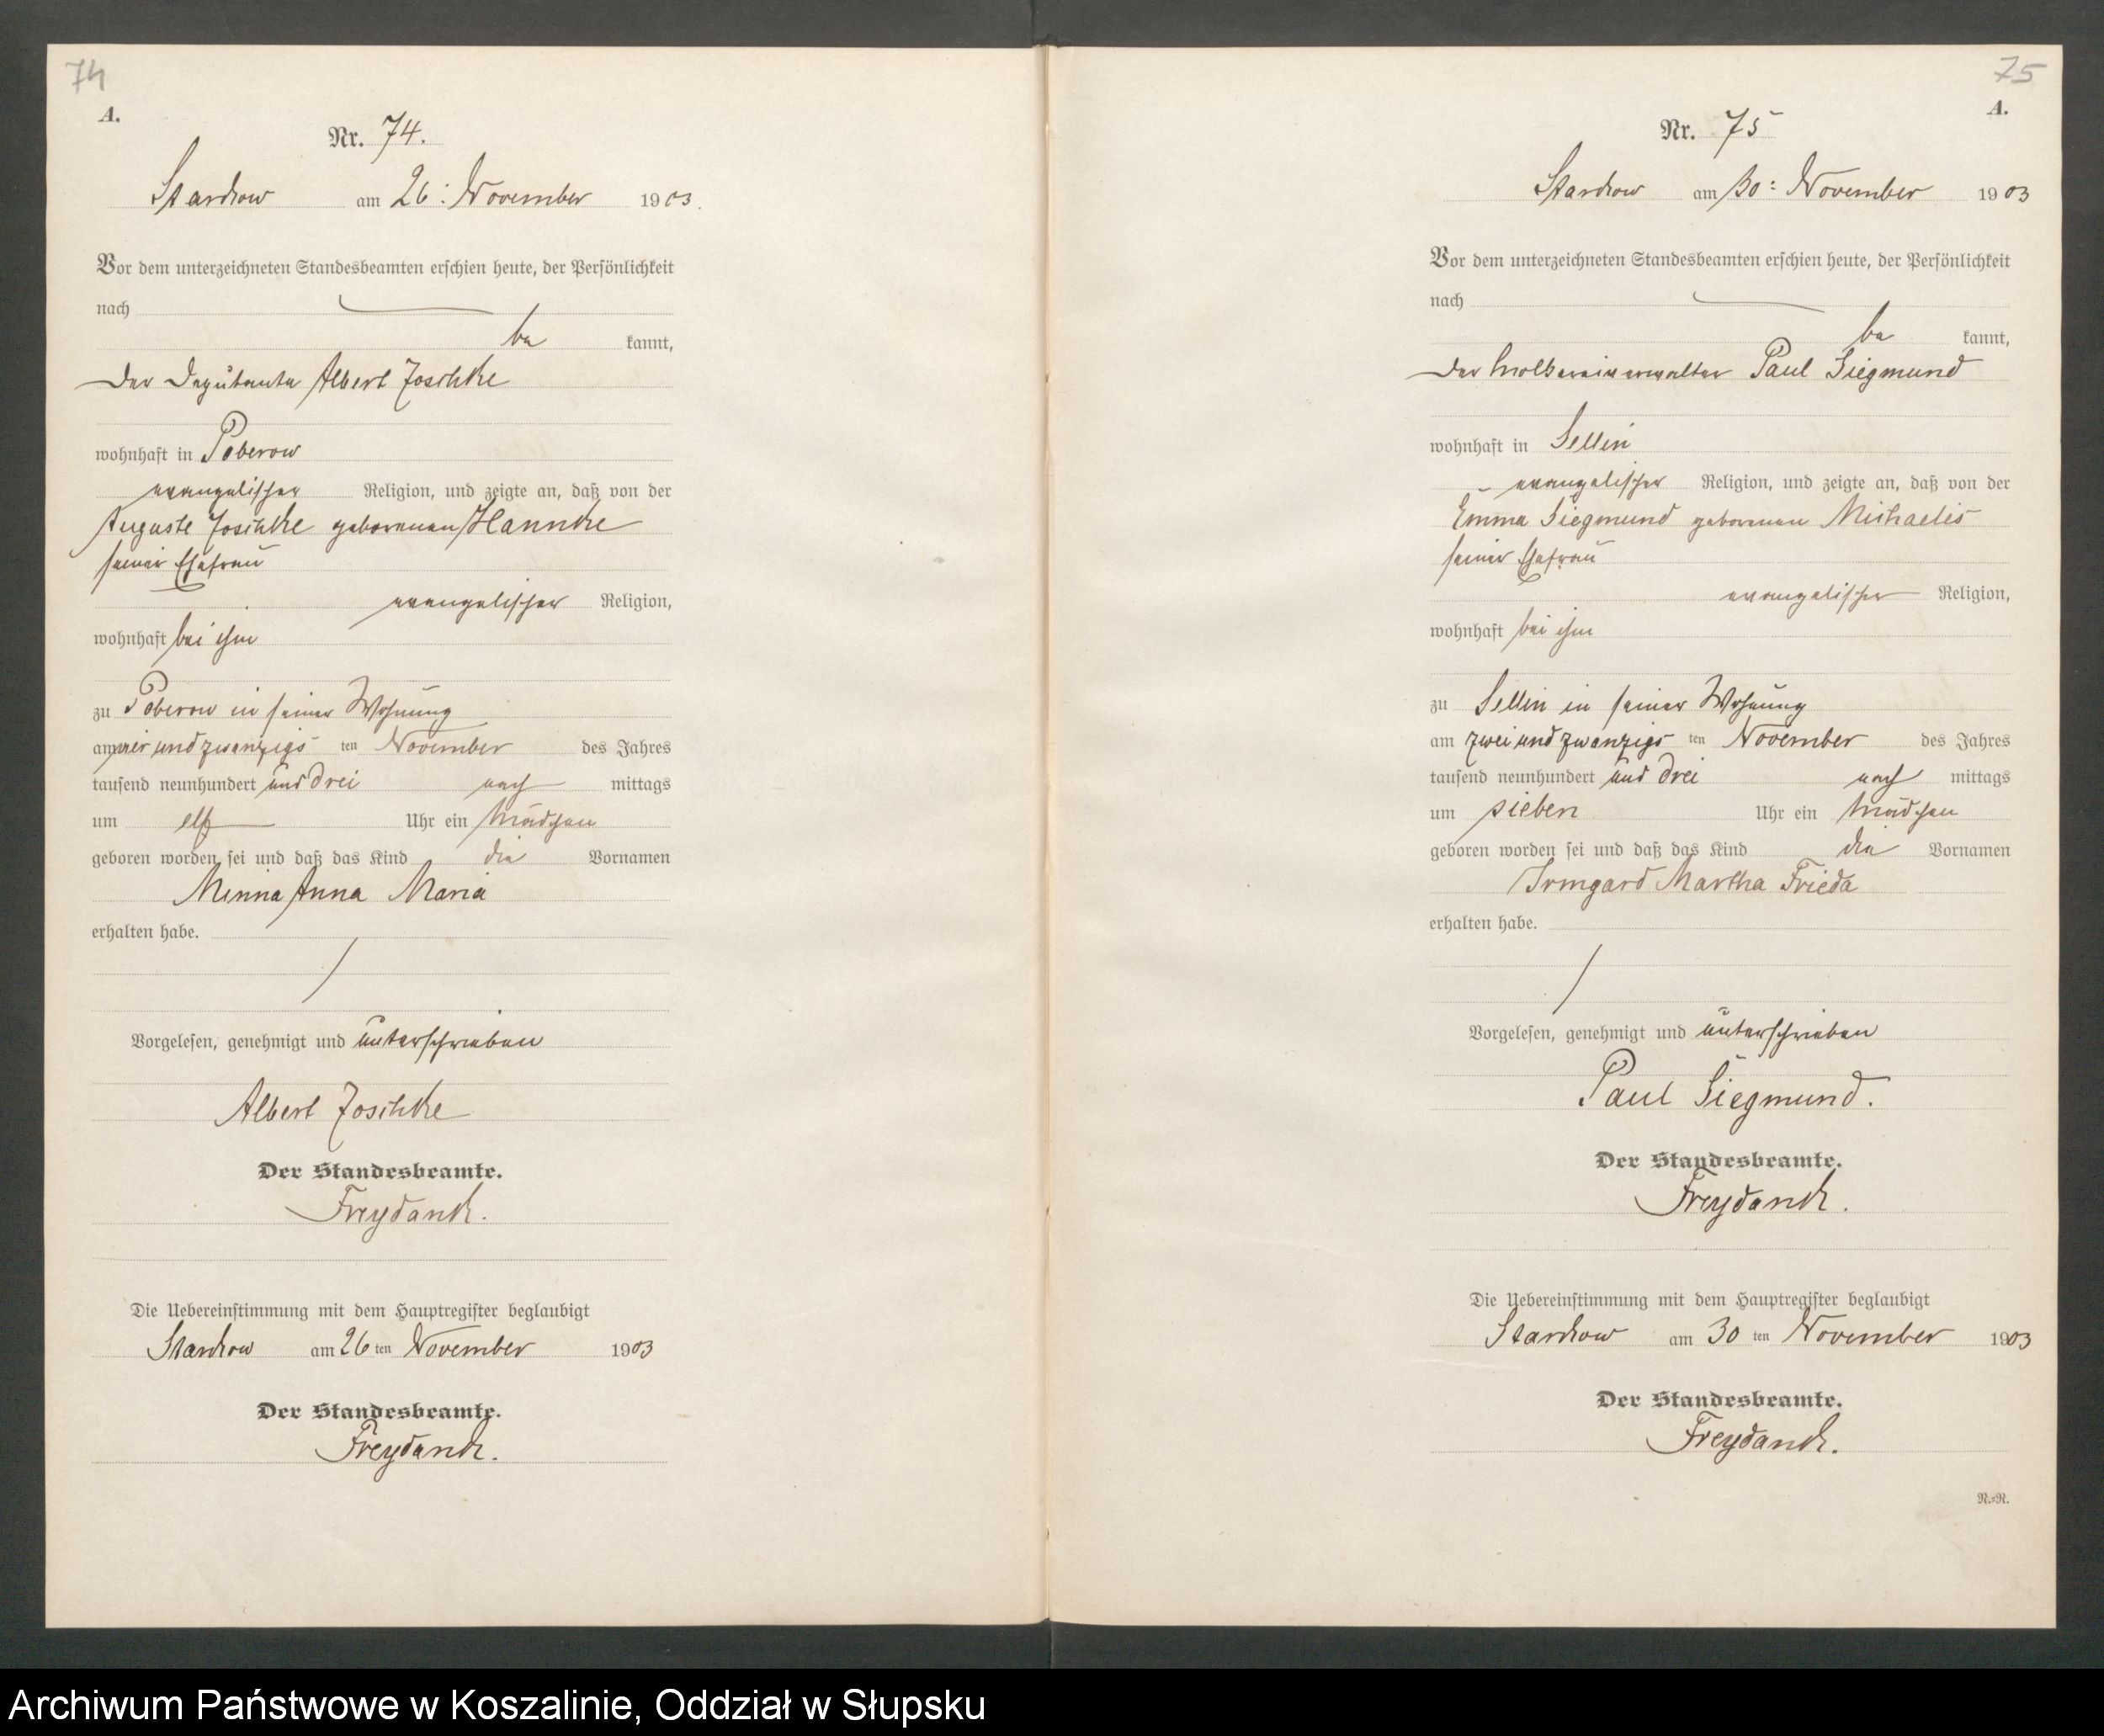 74
A.
Nr. 74.
Starchow am 26: November 1903.
Vor dem unterzeichneten Standesbeamten erschien heute, der Persönlichkeit
nach
be kannt,
der Deputante Albert Joschke
wohnhaft in Poberow
evangelischer Religion, und zeigte an, daß von der
Auguste Joschke geborenen Hanncke
seiner Ehefrau
evangelischer Religion,
wohnhaft bei ihm
zu Poberow in seiner Wohnung
am und zwanzigs ten November des Jahres
tausend neunhundert und drei nach mittags
um elf Uhr ein Mädchen
geboren worden sei und daß das Kind die Vornamen
Minna Anna Maria
erhalten habe.
Vorgelesen, genehmigt und unterschrieben
Albert Joschke
Der Standesbeamte.
Freydanck.
Die Uebereinstimmung mit dem Hauptregister beglaubigt
Starchow am 26 ten November 1903
Der Standesbeamte.
Freydanck.
75
A.
Nr. 75
Starchow am 30: November 1903
Vor dem unterzeichneten Standesbeamten erschien heute, der Persönlichkeit
nach
be kannt,
der Molkereiverwalter Paul Siegmund
wohnhaft in Sellin
evangelischer Religion, und zeigte an, daß von der
Emma Siegmund geborenen Michaelis
seiner Ehefrau
evangelischer Religion,
wohnhaft bei ihm
zu Sellin in seiner Wohnung
am zwei und zwanzigs ten November des Jahres
tausend neunhundert und drei nach mittags
um sieben Uhr ein Mädchen
geboren worden sei und daß das Kind die Vornamen
Irmgard Martha Frieda
erhalten habe.
Vorgelesen, genehmigt und unterschrieben
Paul Siegmund.
Der Standesbeamte.
Freydanck.
Die Uebereinstimmung mit dem Hauptregister beglaubigt
Starchow am 30 ten November 1903
Der Standesbeamte.
Freydanck.
R.=R.
Archiwum Państwowe w Koszalinie, Oddział w Słupsku